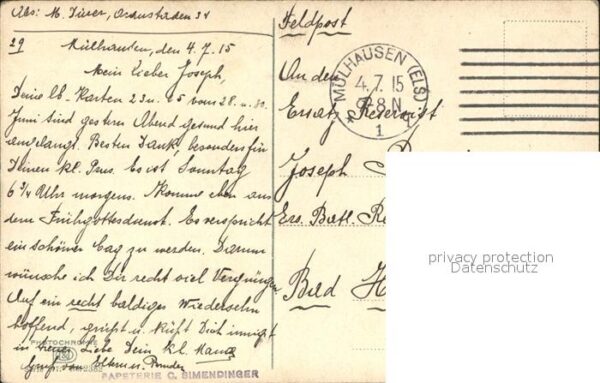 Abs: M. Ordnstraden 34
29 Mülhausen, den 4.7.15
Mein lieber Joseph,
Deine lb. Karten 23 u. 25 vom 28. u. 30.
Juni sind gestern Abend gesund hier
angelangt. Besten Dank, besonders für
Deinen kl. Es ist Sonntag
6 3/4 Uhr morgens. Komme eben aus
dem Frühgottesdienst. Es verspricht
ein schöner Tag zu werden. Darum
wünsche ich Dir recht viel Vergnügen
Auf ein recht baldiges Wiedersehn
hoffend, grüsst u. küsst Dich innigst
in treuer Liebe Dein kl.
Gruss von Eltern u. Bruder
PHOTOCHROMIE
PAPETERIE C. SIMENDINGER
Feldpost
MÜLHAUSEN (ELS)
4.7.15
7-8 N
1
An den
Ersatz Reservist
Joseph
Ers. Batl.
Bad
privacy protection
Datenschutz